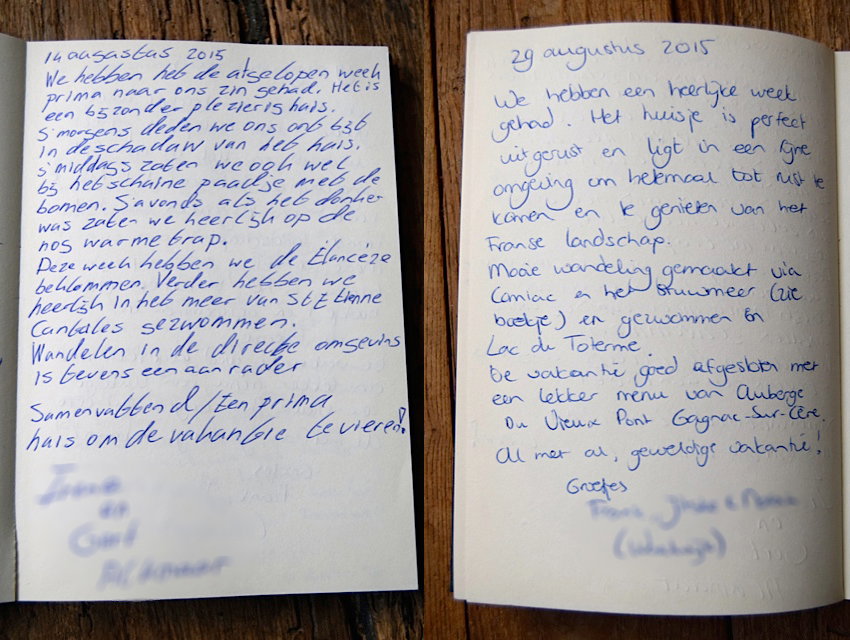 14 augustus 2015
We hebben het de afgelopen week
prima naar ons zin gehad. Het is
een bijzonder plezierig huis.
S'morgens deden we ons ontbijt
in de schaduw van het huis.
S'middags zaten we ook wel
bij het schaine paadje met de
bomen. S'avonds als het donker
was zaten we heerlijk op de
nog warme trap.
Deze week hebben we de
beklommen. Verder hebben we
heerlijk in het meer van St Etienne
Cantales gezwommen.
Wandelen in de directe omgeving
is tevens een aanrader
Samenvattend / Een prima
huis om de vakantie te vieren!
29 augustus 2015
We hebben een heerlijke week
gehad. Het huisje is perfect
uitgerust en ligt in een fijne
omgeving om helemaal tot rust te
komen en te genieten van het
Franse landschap.
Mooie wandeling gemaakt via
Camiac en het stuwmeer (zie
boekje) en gezwommen in
Lac du Tolerme.
De vakantie goed afgesloten met
een lekker menu van Auberge
Du Vieux Pont Gagnac-Sur-Cère.
Al met al, geweldige vakantie!
Groetjes